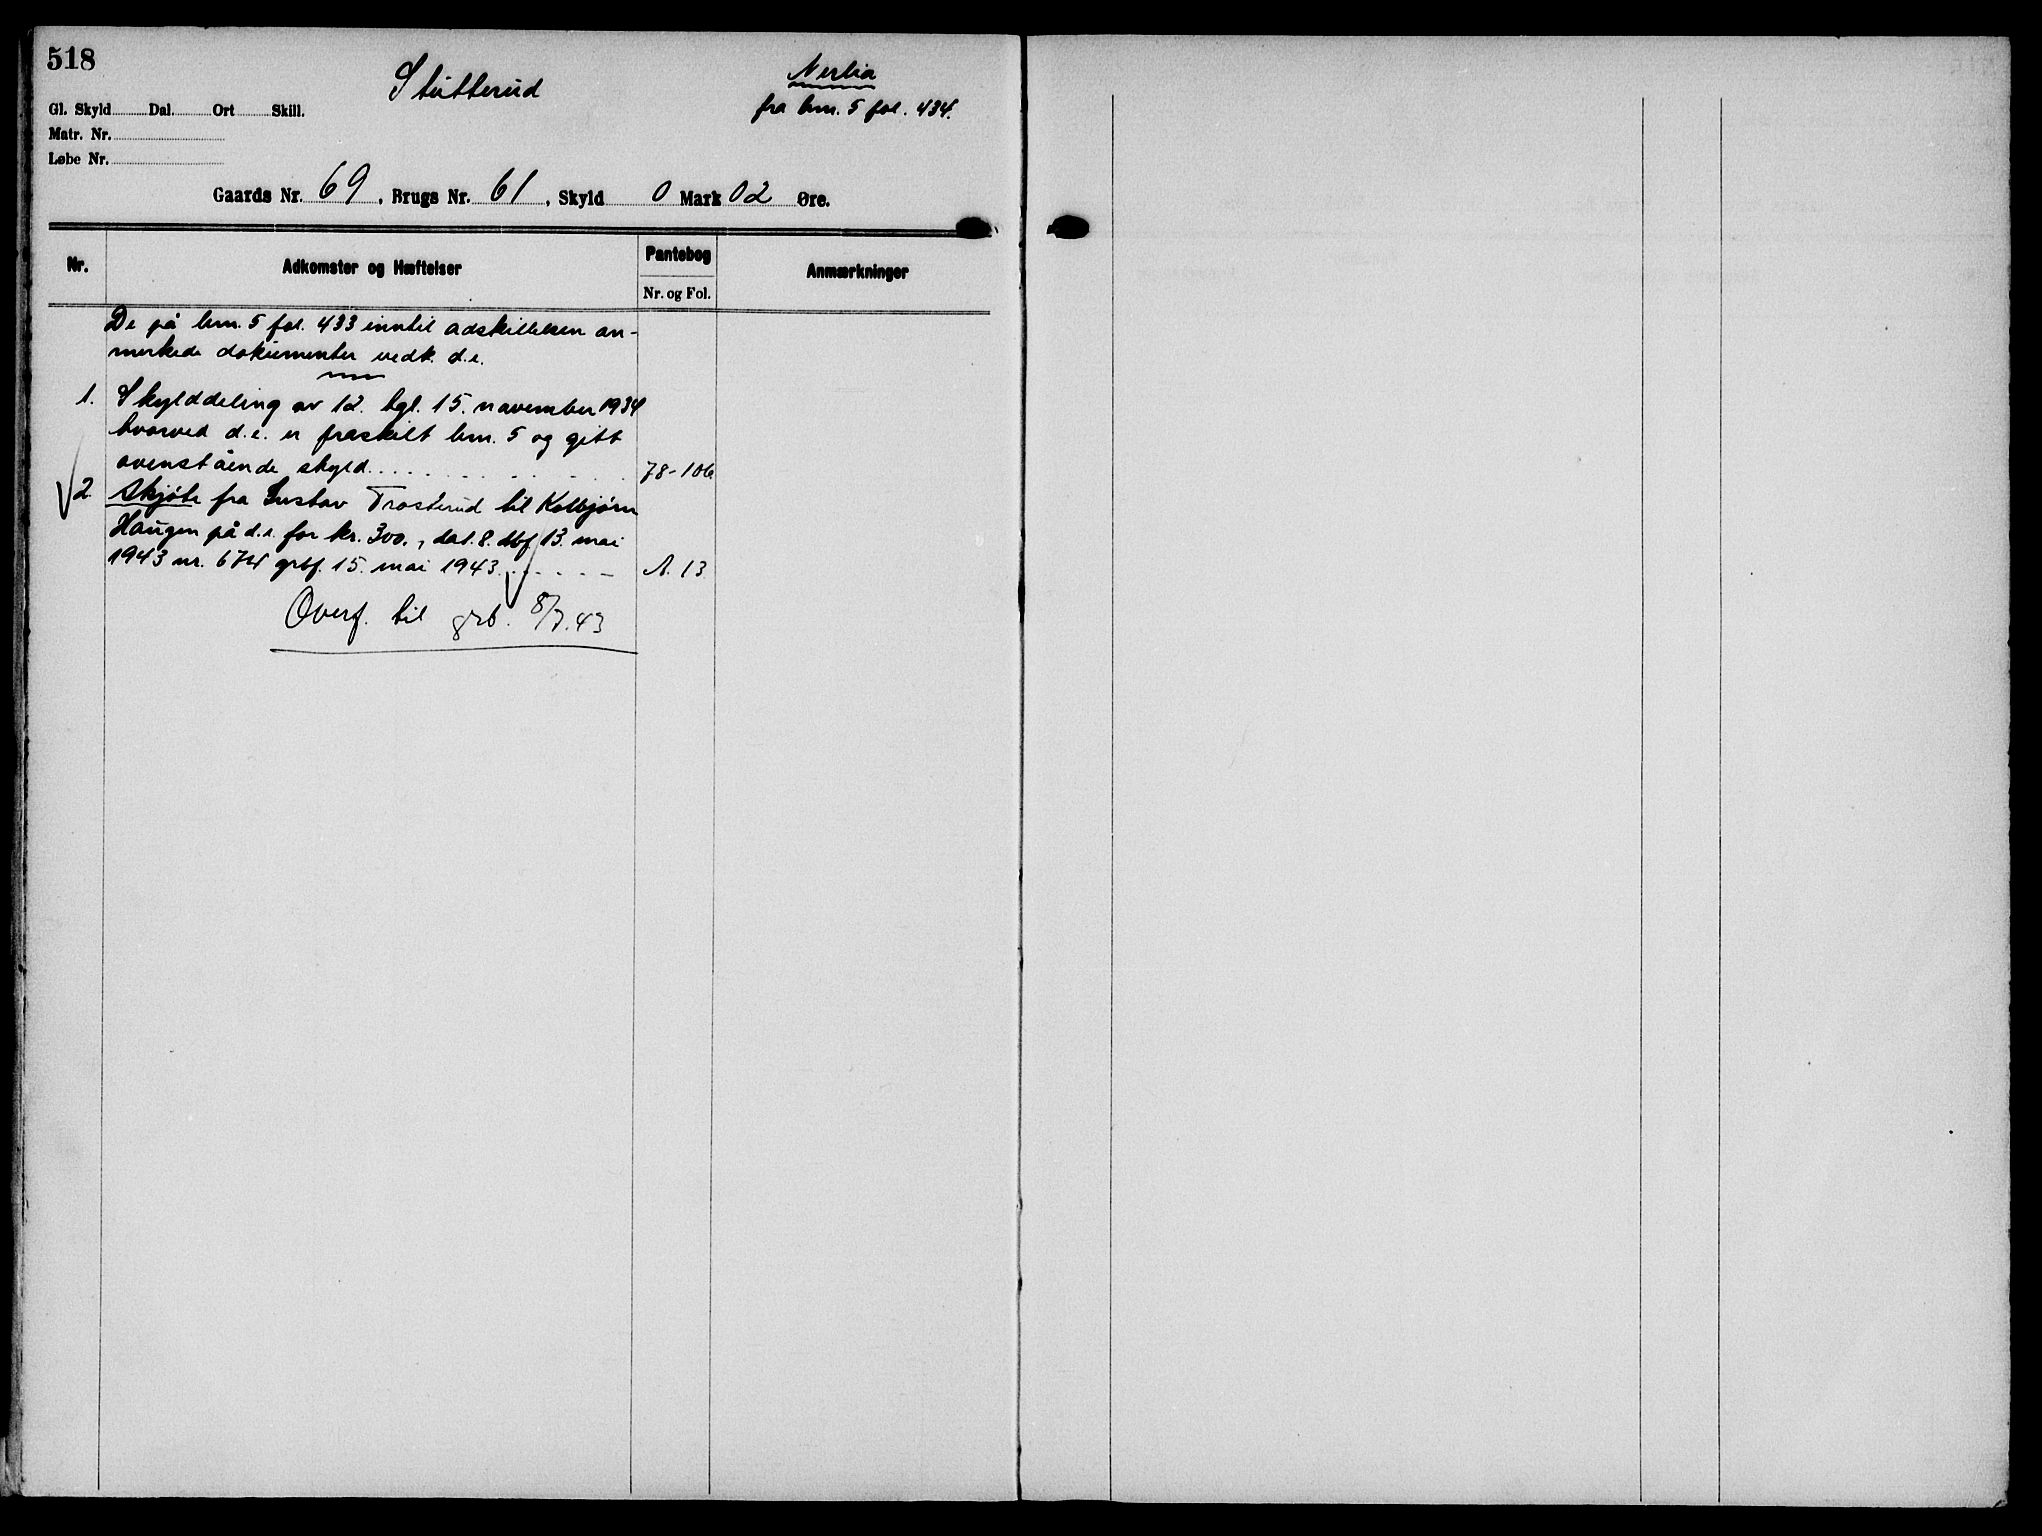 518
Stutterud
Nerlia
fra brn. 5 fol. 434.
Gl. Skyld Dal. Ort Skill.
Matr. Nr.
Løbe Nr.
Gaards Nr. 69, Brugs Nr. 61, Skyld 0 Mark 02 Øre.
Nr. Adkomster og Hæftelser Pantebog Anmærkninger
Nr. og Fol.
De på brn. 5 fol. 433 inntil adskillelsen an-
merkede dokumenter vedk. d.e.
1. Skylddeling av 12. tgl. 15. november 1934
hvorved d.e. er fraskilt brn. 5 og gitt
ovenstående skyld. 78-106
2 Skjøte fra Gustav Trosterud til Kolbjørn
Haugen på d.e. for kr. 300., dat. 8. dbf 13. mai
1943 nr. 674 grbf. 15. mai 1943. A. 13
Overf. til grb. 8/7.43